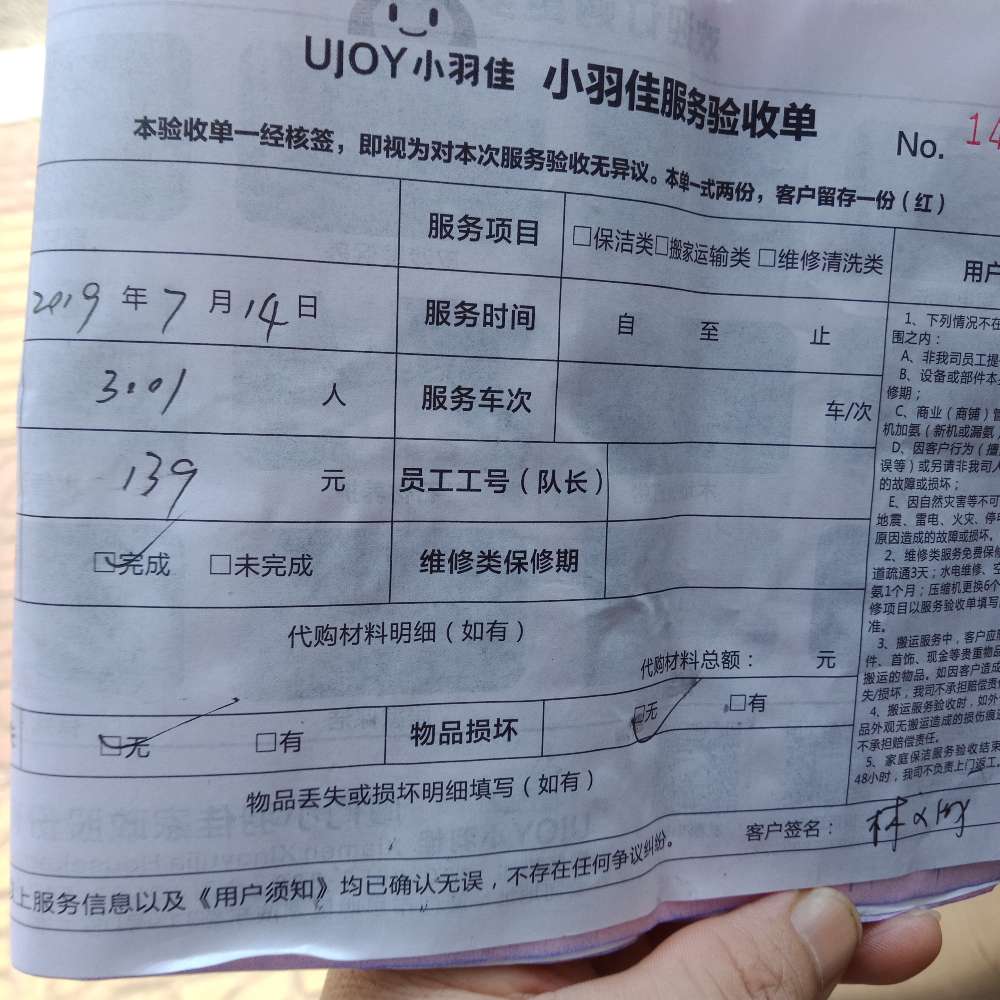 UJOY小羽佳 小羽佳服务验收单
No. 14
本验收单一经核签，即视为对本次服务验收无异议。本单一式两份，客户留存一份（红）
服务项目 □保洁类□搬家运输类 □维修清洗类 用户
2019年7月14日 服务时间 自 至 止
3.01 人 服务车次 车/次
139 元 员工工号（队长）
☑完成 □未完成 维修类保修期
代购材料明细（如有）
代购材料总额： 元
☑无 □有 物品损坏 ☑无 □有
物品丢失或损坏明细填写（如有）
1、下列情况不在
围之内：
A、非我司员工提
B、设备或部件本
修期；
C、商业（商铺）管
机加氨（新机或漏氨
D、因客户行为（擅
误等）或另请非我司人
的故障或损坏；
E、因自然灾害等不可
地震、雷电、火灾、停电
原因造成的故障或损坏。
2、维修类服务免费保修
道疏通3天；水电维修、空
氨1个月；压缩机更换6个
修项目以服务验收单填写
准。
3、搬运服务中，客户应
件、首饰、现金等贵重物品
搬运的物品。如因客户造成
失/损坏，我司不承担赔偿责任
4、搬运服务验收时，如外
品外观无搬运造成的损伤痕
不承担赔偿责任。
5、家庭保洁服务验收结束
48小时，我司不负责上门返工。
客户签名：
上服务信息以及《用户须知》均已确认无误，不存在任何争议纠纷。